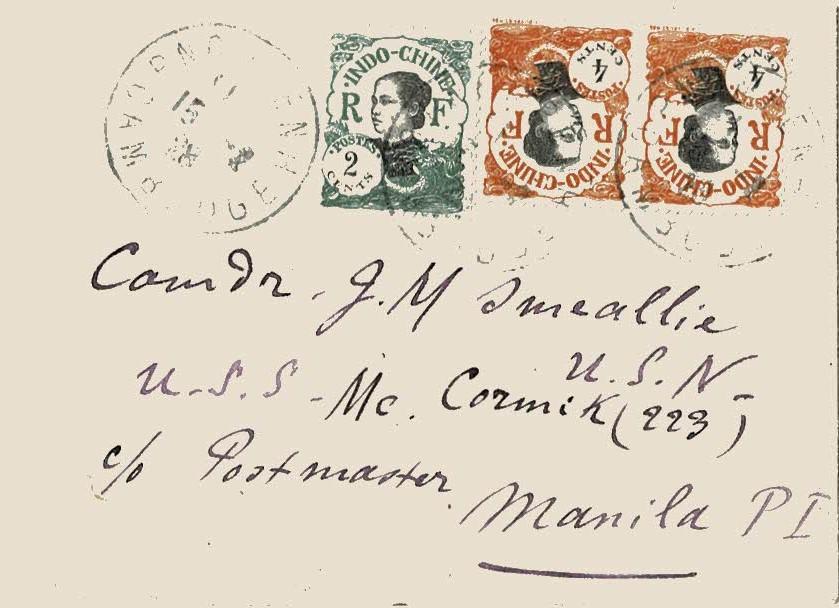 INDO-CHINE
R F
POSTES
2
CENTS
INDO-CHINE
R F
POSTES
4
CENTS
INDO-CHINE
R F
POSTES
4
CENTS
Comdr. J. M Smeallie
U.S.N
U.S.S - Mc. Cormik (223)
c/o Postmaster
Manila PI